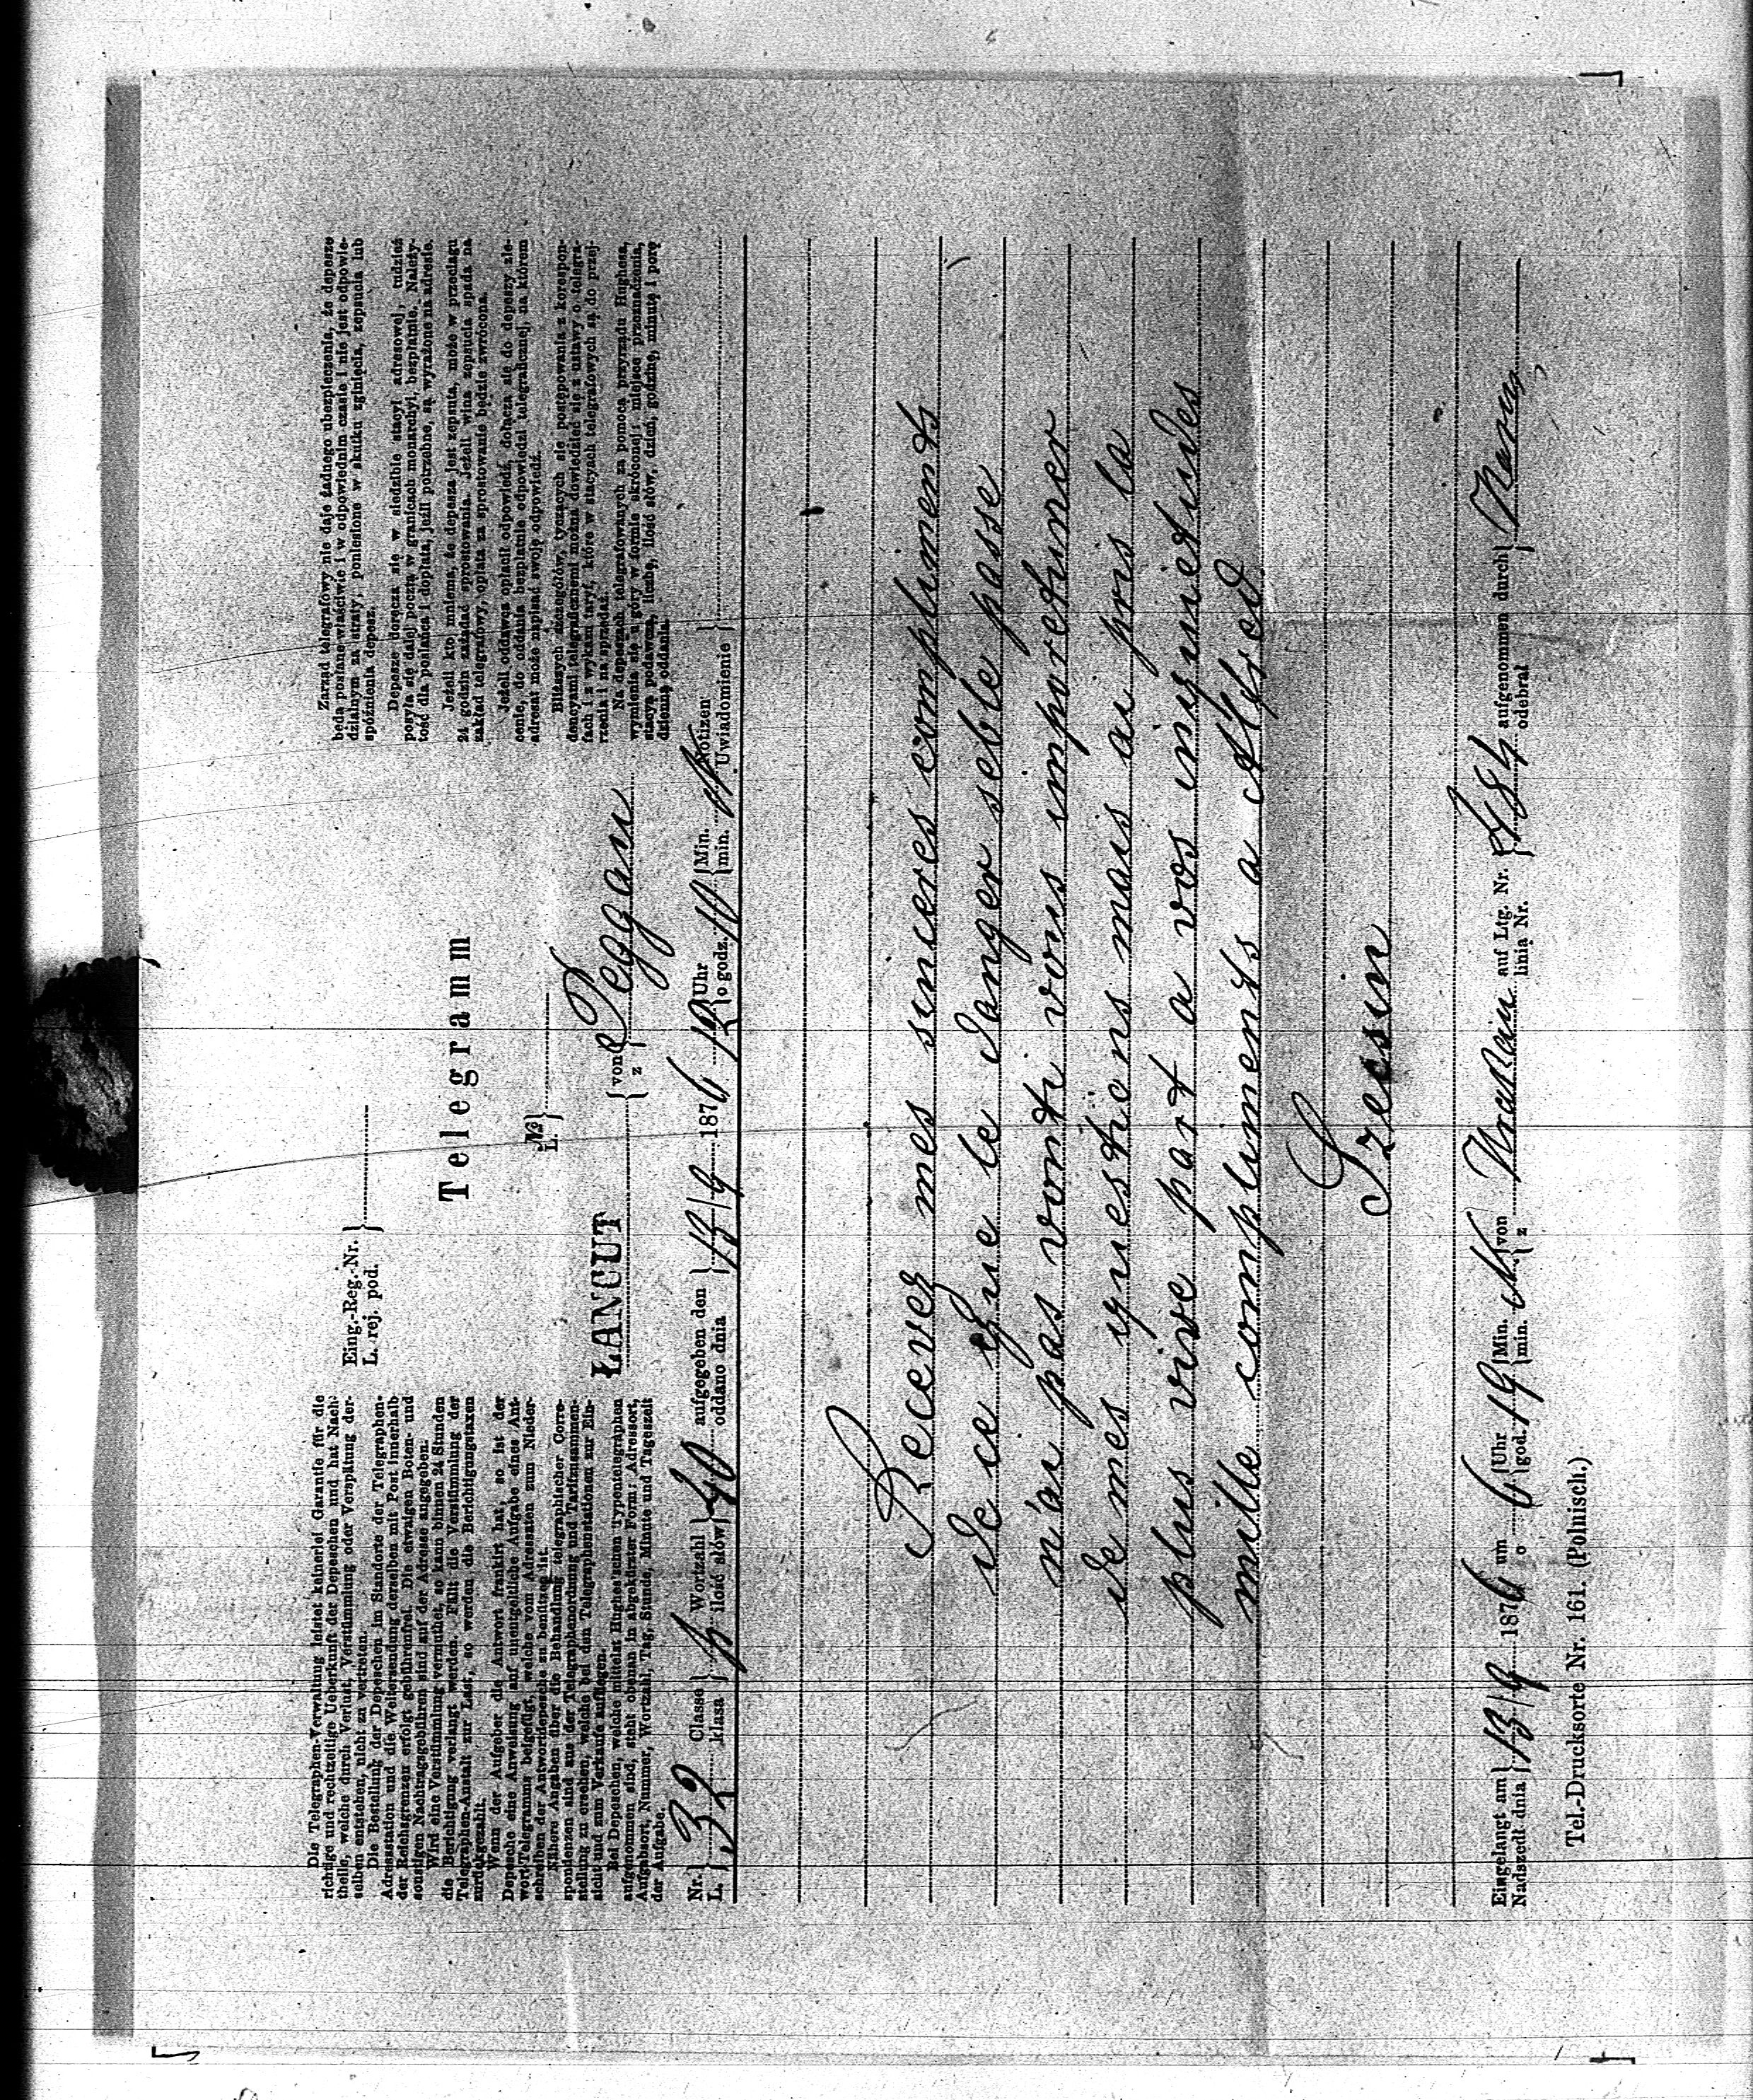 Die Telegraphen-Verwaltung leistet keinerlei Garantie für die
richtige und rechtzeitige Ueberkunft der Depeschen und hat Nach-
theile, welche durch Verlust, Verstümmlung oder Verspätung der-
selben entstehen, nicht zu vertreten.
Die Bestellung der Depeschen im Standorte der Telegraphen-
Adressstation und die Weitersendung derselben mit Post innerhalb
der Reichsgrenzen erfolgt gebührenfrei. Die etwaigen Boten- und
sonstigen Nachtragsgebühren sind auf der Adresse angegeben.
Wird eine Verstümmlung vermuthet, so kann binnen 24 Stunden
die Berichtigung verlangt werden. Fällt die Verstümmlung der
Telegraphen-Anstalt zur Last, so werden die Berichtigungstaxen
zurückgezahlt.
Wenn der Aufgeber die Antwort frankirt hat, so ist der
Depesche eine Anweisung auf unentgeltliche Aufgabe eines Ant-
wort-Telegramms beigefügt, welche vom Adressaten zum Nieder-
schreiben der Antwortdepesche zu benützen ist.
Nähere Angaben über die Behandlung telegraphischer Corre-
spondenzen sind aus der Telegraphenordnung und Tarifzusammen-
stellung zu ersehen, welche bei den Telegraphenstationen zur Ein-
sicht und zum Verkaufe aufliegen.
Bei Depeschen, welche mittelst Hughes'schen Typentelegraphen
aufgenommen sind, steht obenan in abgekürzter Form: Adressort,
Aufgabsort, Nummer, Wortzahl, Tag, Stunde, Minute und Tageszeit
der Aufgabe.
Eing.-Reg.-Nr.
L. rej. pod.
Telegramm
№
L.
ŁANCUT
von
z
Peggau
Zarząd telegrafowy nie daje żadnego ubezpieczenia, że depesze
będą posłane właściwie i w odpowiednim czasie i nie jest odpowie-
dzialnym za straty, poniesione w skutku zginięcia, zepsucia lub
spóźnienia depesz.
Depesze doręcza się w siedzibie stacyi adresowej, tudzież
posyła się dalej pocztą w granicach monarchyi, bezpłatnie. Należy-
tość dla posłańca i dopłata, jeżli potrzebne, są wyrażone na adresie.
Jeżeli kto mniema, że depesza jest zepsuta, może w przeciągu
24 godzin zażądać sprostowania. Jeżeli wina zepsucia spada na
zakład telegrafowy, opłata za sprostowanie będzie zwrócona.
Jeżeli oddawca opłacił odpowiedź, dołącza się do depeszy zle-
cenie, do oddania bezpłatnie odpowiedzi telegraficznej, na którem
adresat może napisać swoję odpowiedź.
Bliższych szczegółów, tyczących się postępowania z korespon-
dencyami telegraficznemi można dowiedzieć się z ustawy o telegra-
fach i z wykazu taryf, które w stacyach telegrafowych są do przej-
rzenia i na sprzedaż.
Na depeszach telegrafowanych za pomocą przyrządu Hughesa,
wymienia się u góry w formie skróconej: miejsce przeznaczenia,
stacyą podawczą, liczbę, ilość słów, dzień, godzinę, minutę i porę
dzienną oddania.
Nr. 32 Classe Wortzahl 40 aufgegeben den 13/9 1876 12 Uhr 10 Min. Notizen
L. klasa ilość słów oddano dnia o godz. min. Uwiadomienie
Recevez mes sinceres compliments
de ce que le danger seble passe
n'ai pas vonti vous importuner
de mes questions mais ai pris la
plus vive part a vos inquietudes
mille compliments a Alfred
Szecsin
Eingelangt am 13/9 1876 um 6 Uhr 19 Min. von auf Ltg. Nr. 484 aufgenommen durch
Nadszedł dnia o god. min. z linia Nr. odebrał
Tel.-Drucksorte Nr. 161. (Polnisch.)